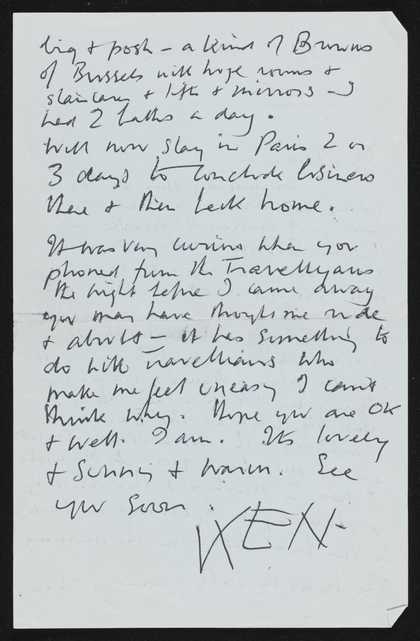 big & posh – a kind of Browns
of Brussels with huge rooms &
staircases & lifts & mirrors – I
had 2 baths a day.
Will now stay in Paris 2 or
3 days to conclude business
there & then back home.
It was very curious when you
phoned from the
the night before I came away
you may have thought me rude
& abrupt – it has something to
do with who
make me feel uneasy I can't
think why. Hope you are OK
& well. I am. Its lovely
& sunny & warm. See
you soon.
KEN.